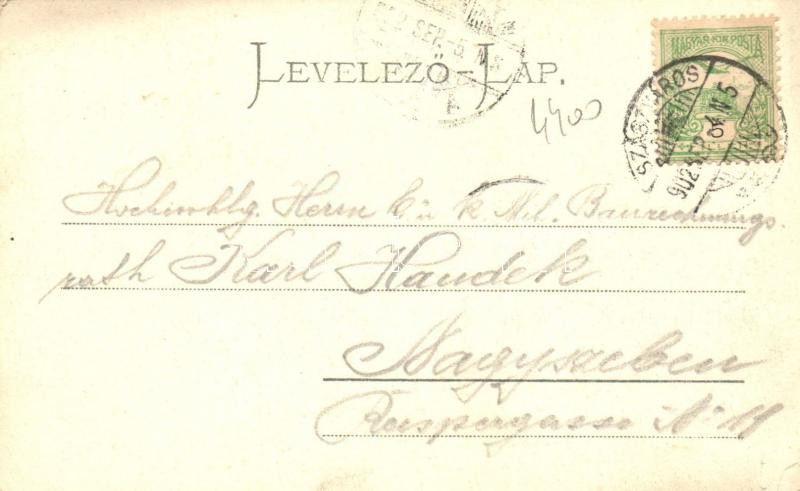 LEVELEZŐ-LAP.
MAGYAR KIR. POSTA
SZÁSZVÁROS
902 SEP.
4400
Hochwohlg. Herrn k. u. k. Mil. Baurechnungs-
rath Karl Handek
Nagyszeben
Reispergasse № 11